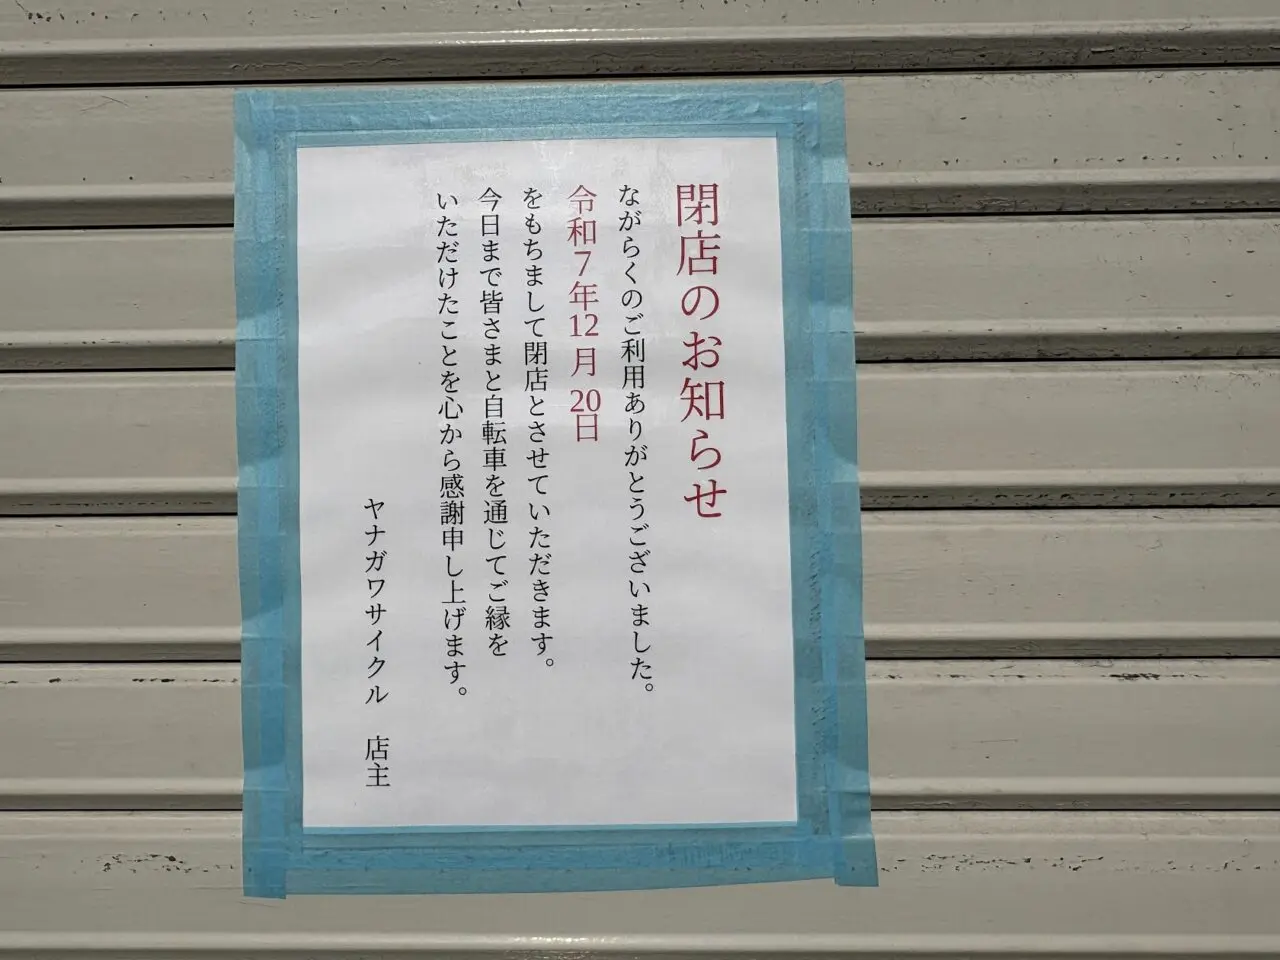 閉店のお知らせ
ながらくのご利用ありがとうございました。
令和７年12月20日
をもちまして閉店とさせていただきます。
今日まで皆さまと自転車を通じてご縁を
いただけたことを心から感謝申し上げます。
ヤナガワサイクル　店主